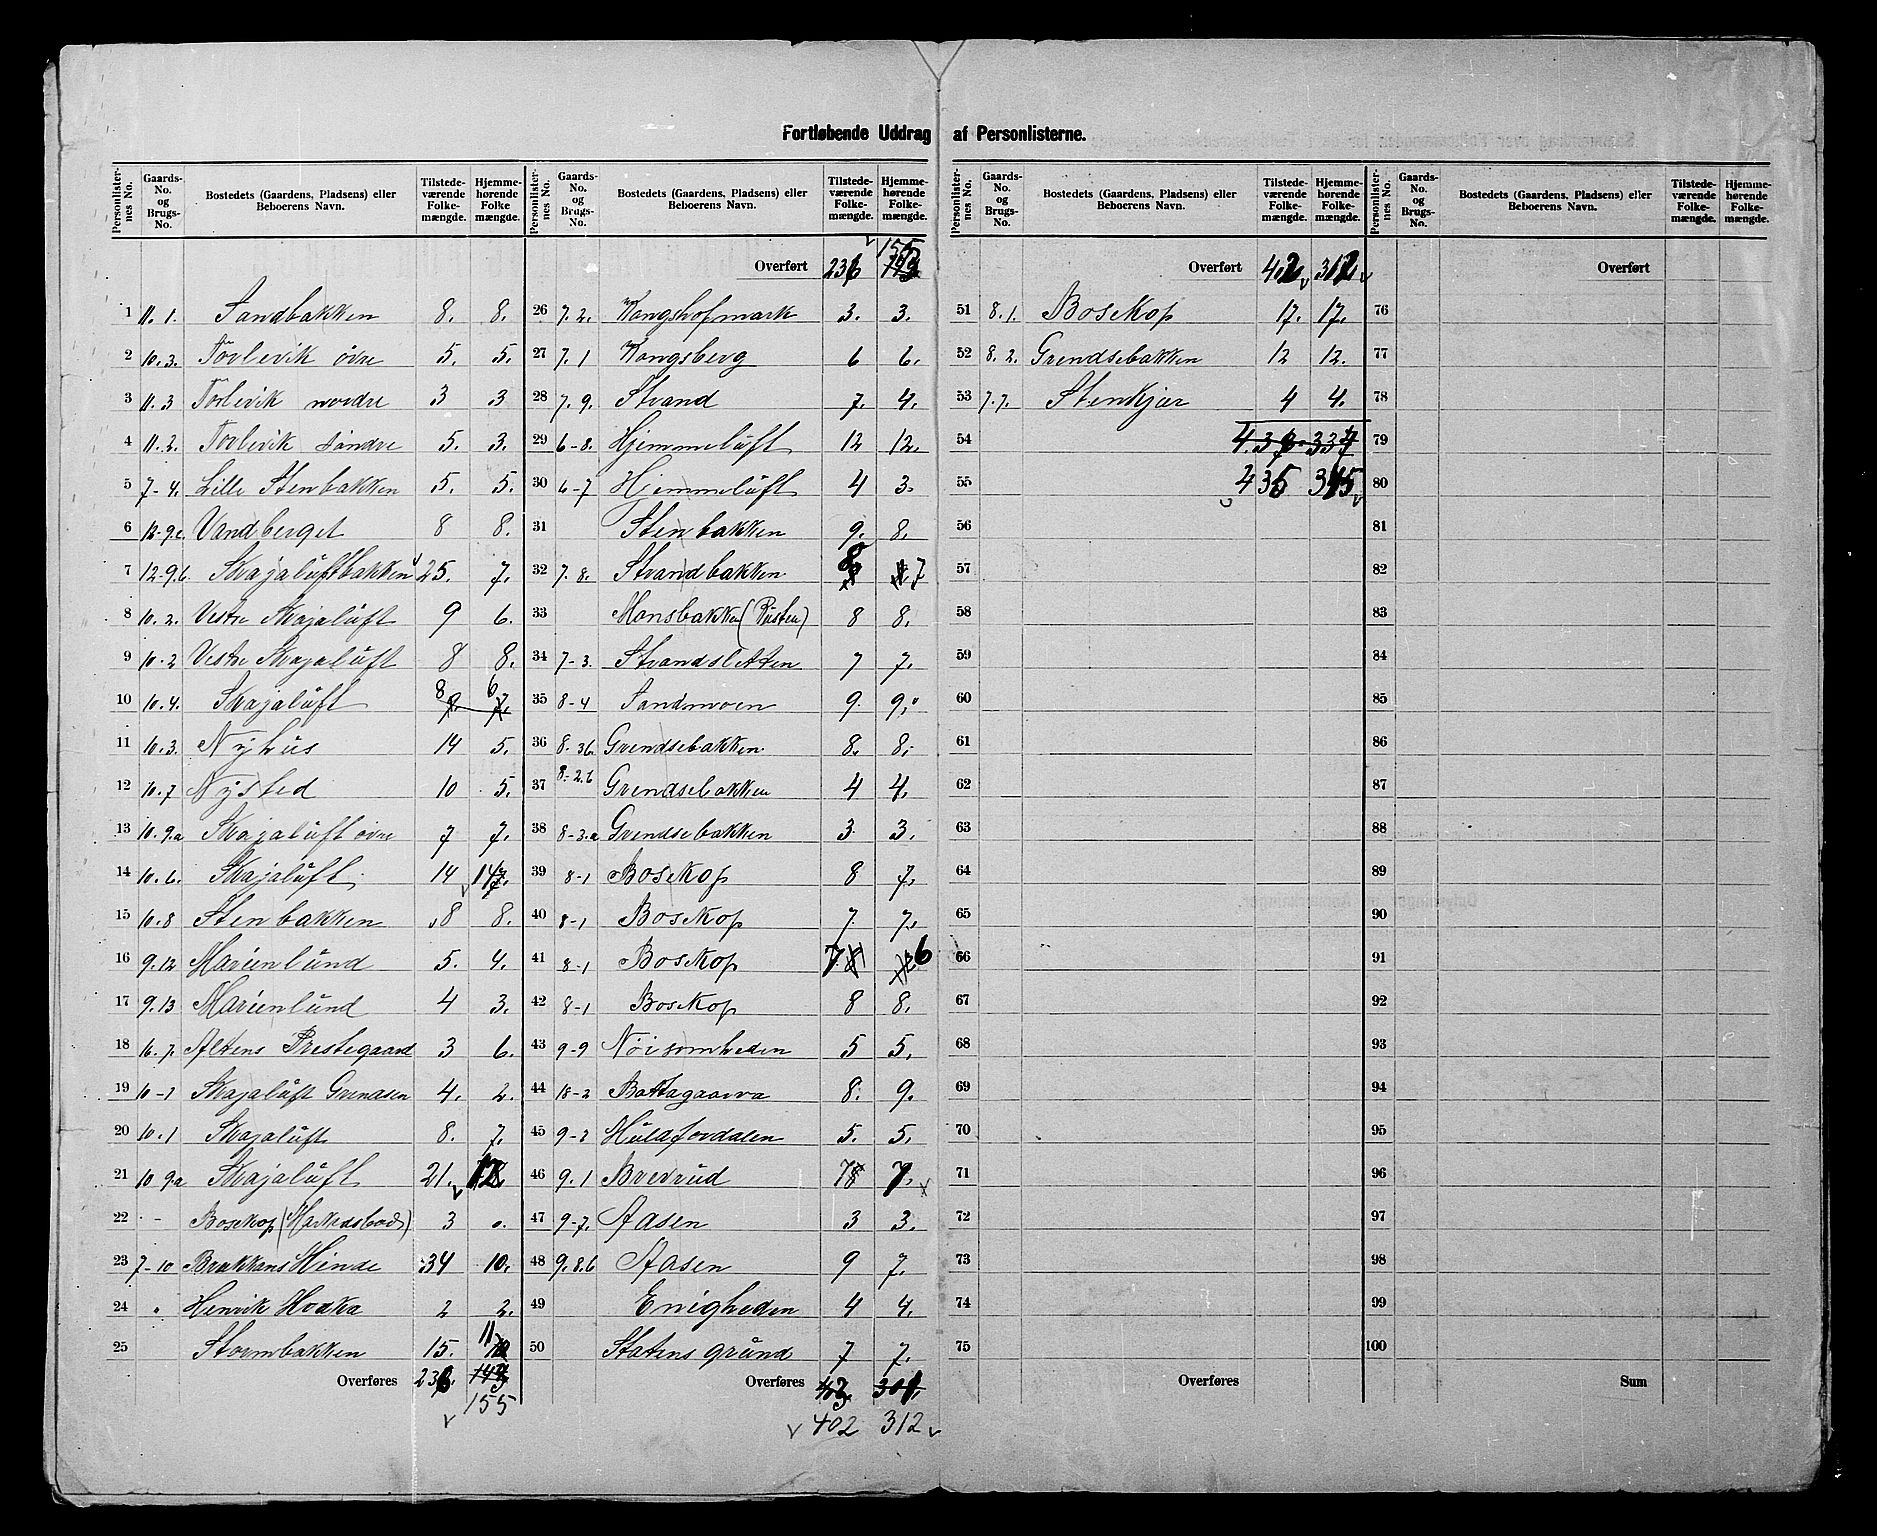 Fortløbende Uddrag af Personlisterne.
Personlisternes No. Gaards-No. og Brugs-No. Bostedets (Gaardens, Pladsens) eller Beboerens Navn. Tilstedeværende Folkemængde. Hjemmehørende Folkemængde.
1 11. 1. Sandbakken 8. 8.
2 10. 3. Torlevik övre 5. 5.
3 11. 3 Torlevik nordre 3 3
4 11. 2. Torlevik söndre 5. 3.
5 7-4. Lille Stenbakken 5. 5.
6 12-9.c. Vandberget 8 8.
7 12-9.b. Skajalüftbakken 25. 7.
8 10. 2. Vestre Skajalüft 9 6.
9 10-2 Vestre Skajalüft 8 8.
10 10. 4. Skajalüft 8 6
11 10. 3. Nyhüs 14 5.
12 10. 7 Nysted 10 5.
13 10. 9.a Skajalüft övre 7 7.
14 10. 6. Skajalüft 14 14
15 10. 8 Stenbakken 8 8.
16 9. 12 Marienlünd 5. 4.
17 9. 13 Marienlünd 4 3.
18 16. 7. Altens Prestegaard 3 6.
19 10-1 Skajalüft Grendsen 4. 2.
20 10. 1 Skajalüft 8. 7.
21 10 9a Skajalüft 21.
22 - Bosekop (Markedsbod) 3 0.
23 7-10 Brakkans Minde 34 10.
24 " Henrik 2 2.
25 Stormbakken 15. 11
Overføres 236. 155
Personlisternes No. Gaards-No. og Brugs-No. Bostedets (Gaardens, Pladsens) eller Beboerens Navn. Tilstedeværende Folkemængde. Hjemmehørende Folkemængde.
Overført 236 155
26 7. 2. Kongshofmark 3. 3.
27 7. 1 Kongsberg 6 6.
28 7. 9. Strand 7. 4.
29 6-8. Hjemmelüft 12 12.
30 6-7 Hjemmelüft 4 3.
31 Stenbakken 9. 8.
32 7. 8. Strandbakken 8 7
33 Monsbakken (Püsten) 8 8.
34 7-3. Strandsletten 7 7.
35 8-4 Sandmoen 9. 9.
36 8. 3b. Grendsebakken 8. 8.
37 8-2.b Grendsebakken 4 4.
38 8-3.a Grendsebakken 3. 3.
39 8-1 Bosekop 8 7.
40 8-1 Bosekop 7. 7.
41 8-1 Bosekop 7 6
42 8-1 Bosekop 8 8.
43 9-9 Nöisomheden 5 5.
44 18-2 Bottagaarva 8. 9.
45 9-2 5. 5.
46 9. 1 Brevrüd 7 7.
47 9-7. Aasen 3 3.
48 9. 8.b Aasen 9 7.
49 Enigheden 4 4.
50 Statens gründ 7 7.
Overføres
402 312
Personlisternes No. Gaards-No. og Brugs-No. Bostedets (Gaardens, Pladsens) eller Beboerens Navn. Tilstedeværende Folkemængde. Hjemmehørende Folkemængde.
Overført 402 312
51 8. 1. Bosekop 17. 17.
52 8. 2. Grendsebakken 12 12.
53 7. 7. Stenkjær 4 4.
54
55 435 345
56
57
58
59
60
61
62
63
64
65
66
67
68
69
70
71
72
73
74
75
Overføres
Personlisternes No. Gaards-No. og Brugs-No. Bostedets (Gaardens, Pladsens) eller Beboerens Navn. Tilstedeværende Folkemængde. Hjemmehørende Folkemængde.
Overført
76
77
78
79
80
81
82
83
84
85
86
87
88
89
90
91
92
93
94
95
96
97
98
99
100
Sum